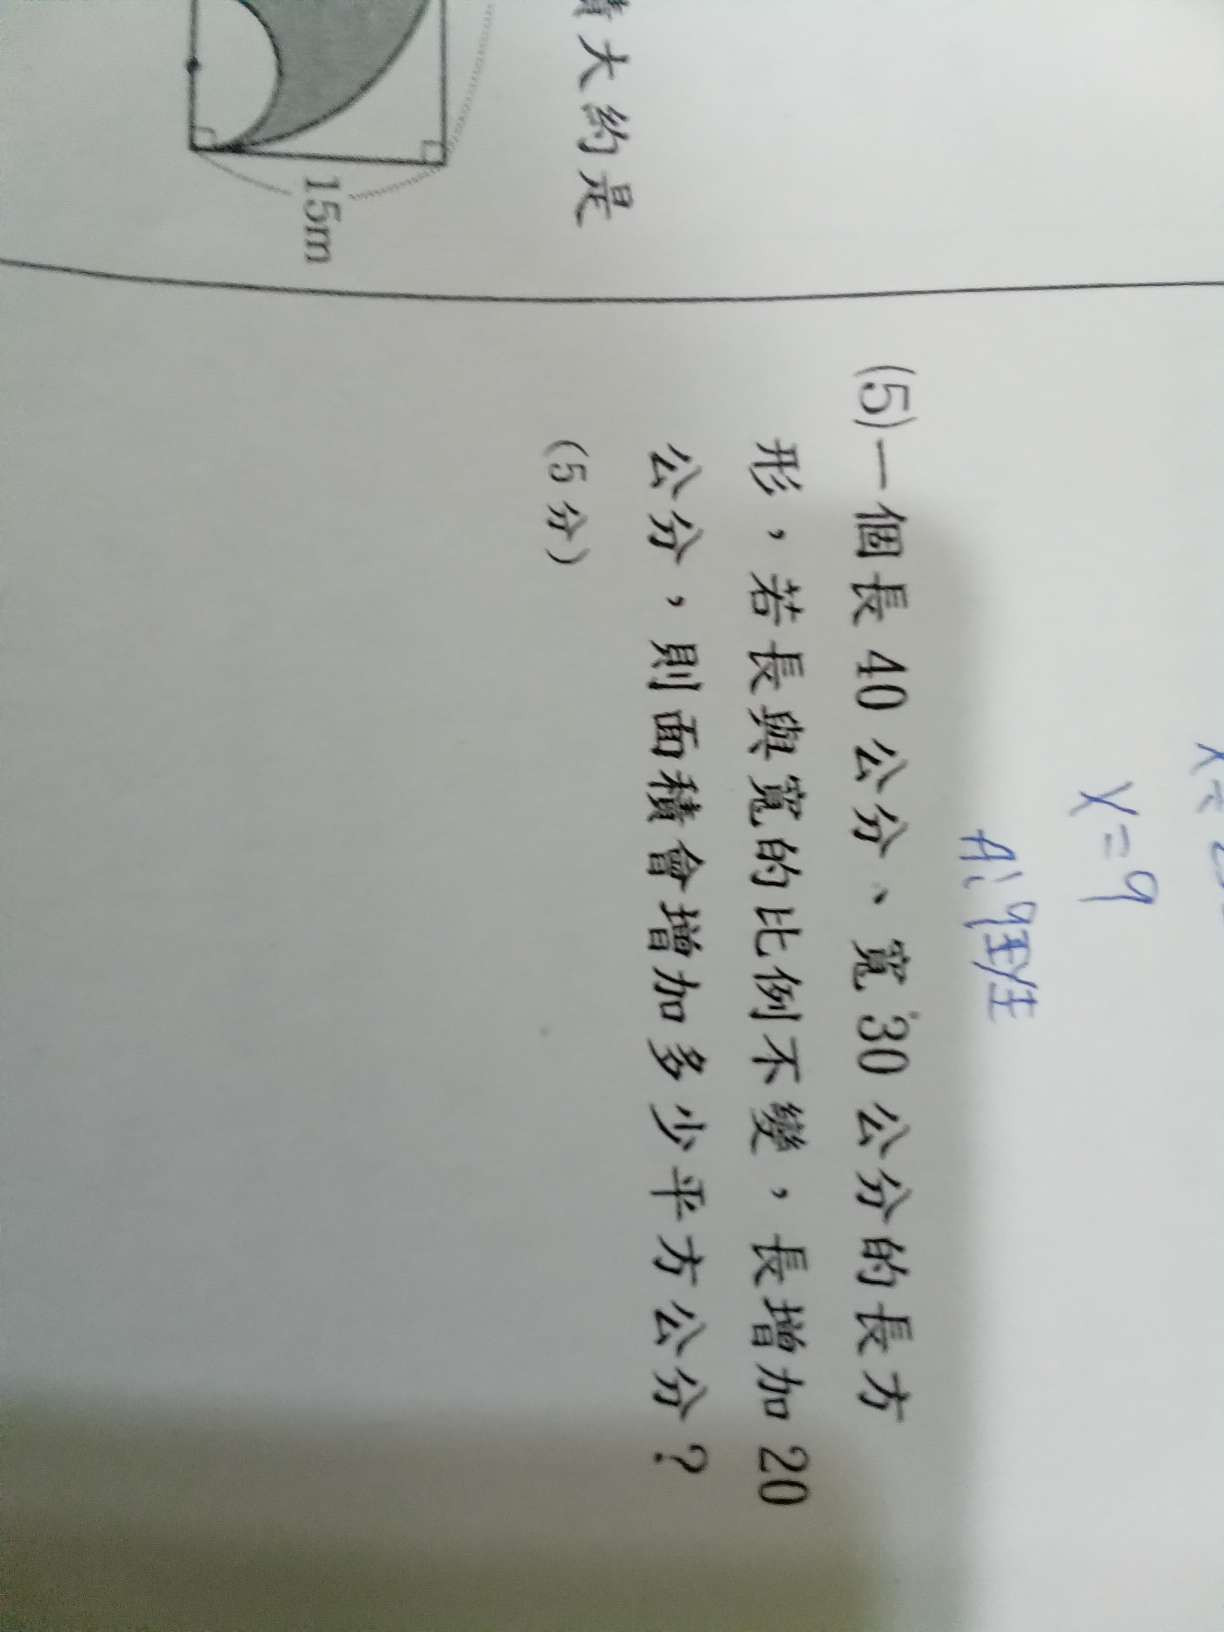 大約是
15m
y=9
(5)一個長 40 公分、寬 30 公分的長方
形，若長與寬的比例不變，長增加 20
公分，則面積會增加多少平方公分？
（5 分）